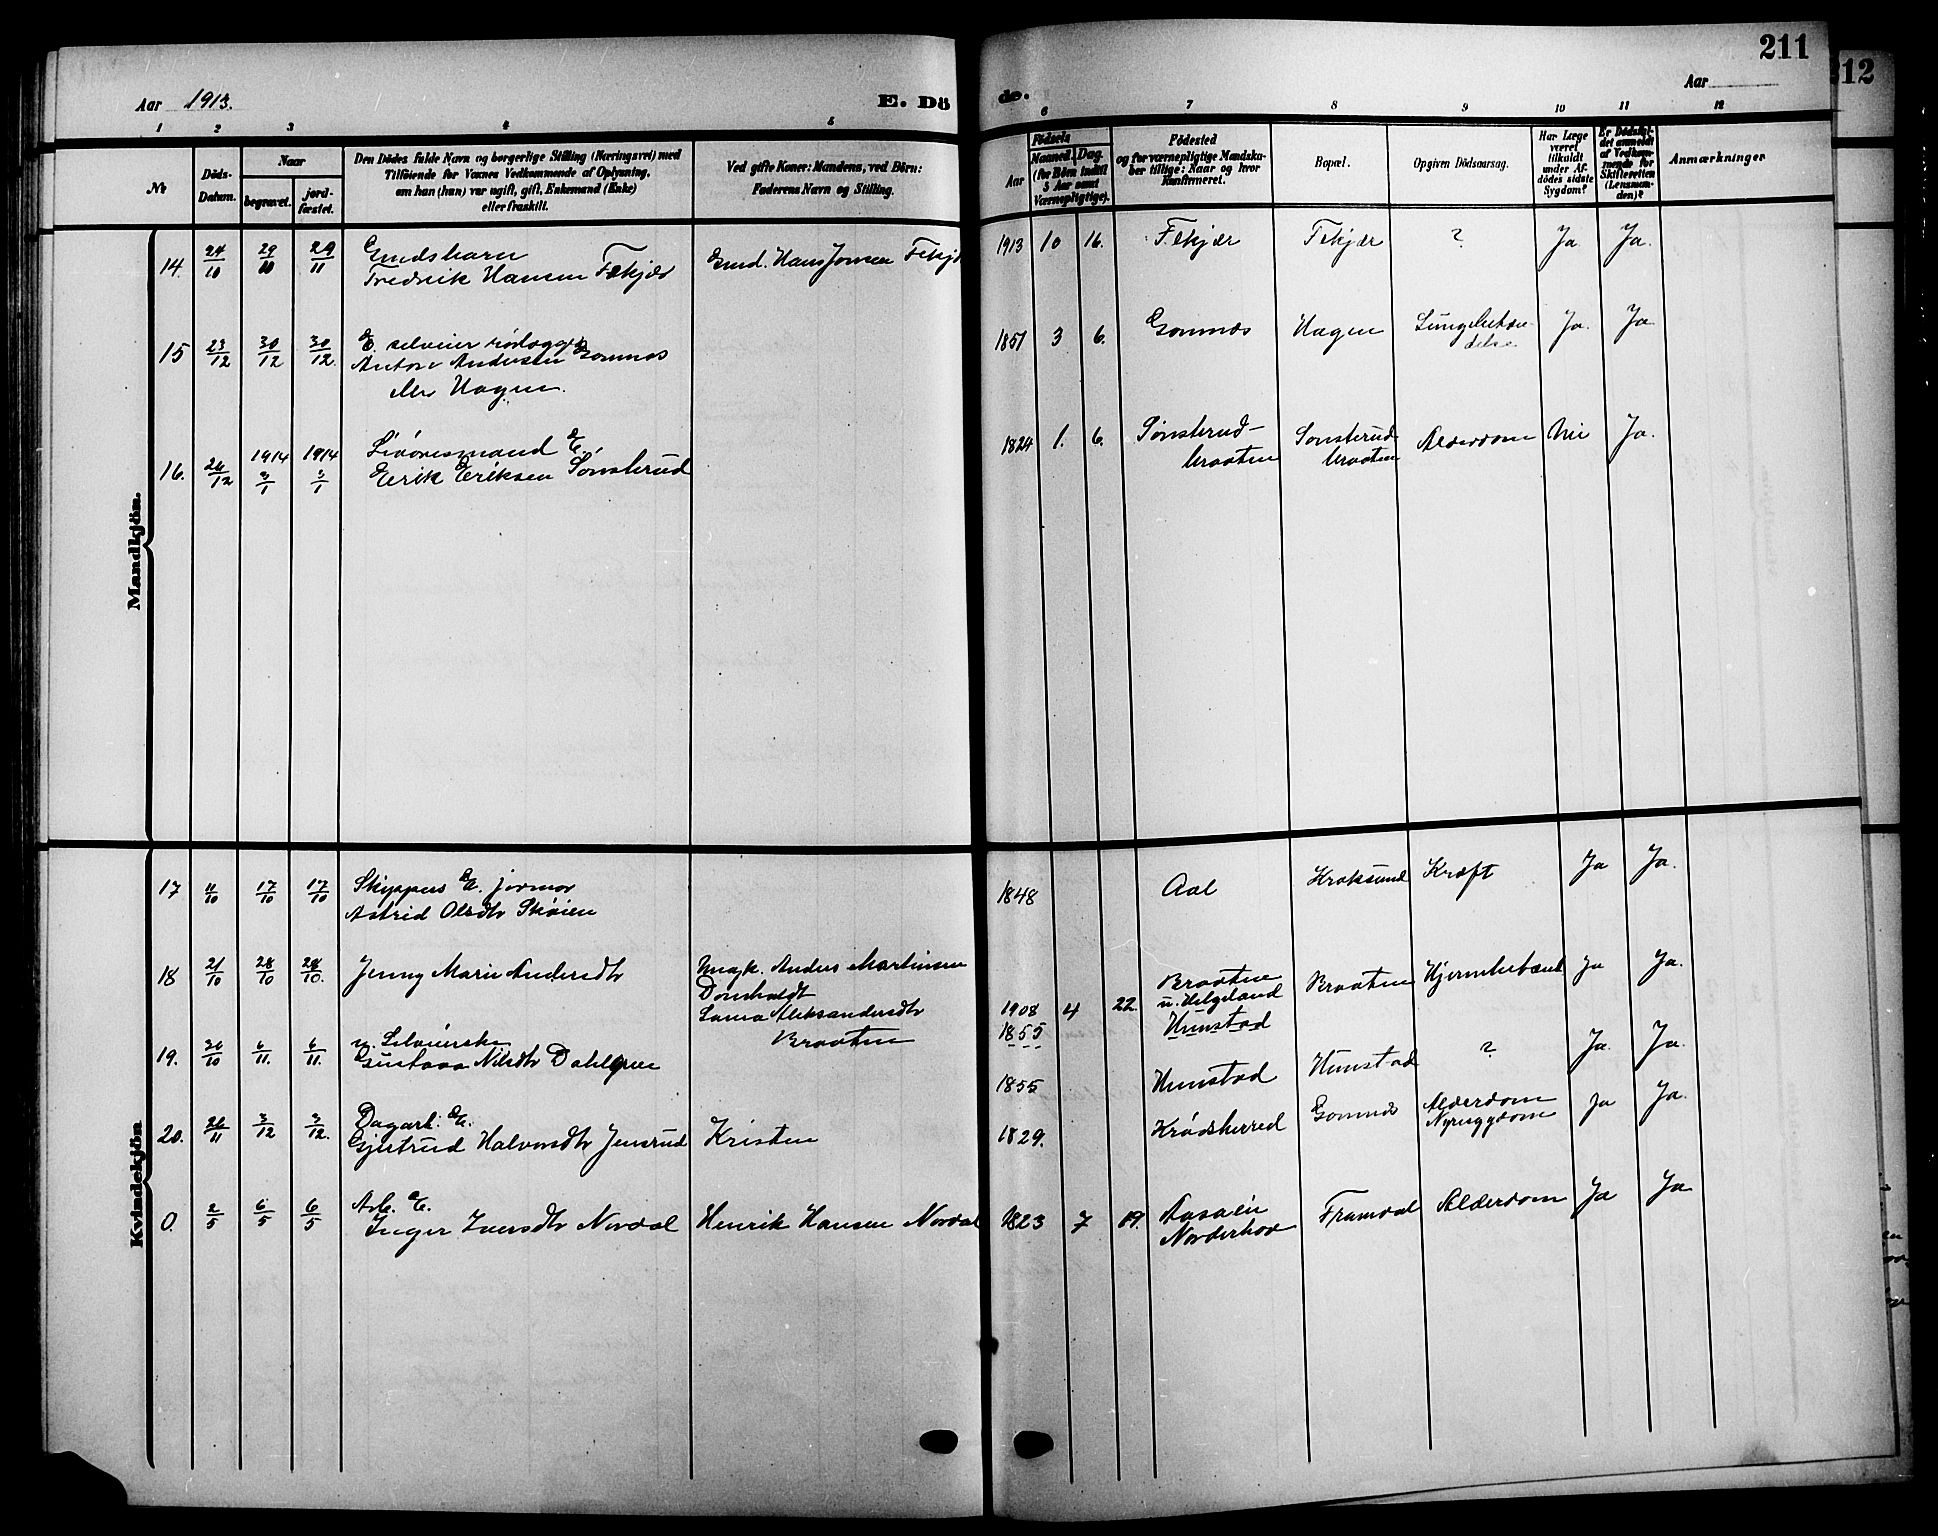 Aar 1913.
E. Dö
de.
211
Aar
212
1 2 3 4 5
6 7 8 9 10 11 12
No
Döds-Datum.
Naar
begravet.
jord-fæstet.
Den Dödes fulde Navn og borgerlige Stilling (Næringsvei) med
Tilföiende for Voxnes Vedkommende af Oplysning,
om han (hun) var ugift, gift, Enkemand (Enke)
eller fraskilt.
Ved gifte Koner: Mandens, ved Börn:
Faderens Navn og Stilling.
Födsels
Aar
Maaned.
Dag
(for Börn indtil
5 Aar samt
Værnepligtige).
Födested
og for værnepligtige Mandska-
ber tillige: Naar og hvor
Konfirmeret.
Bopæl.
Opgiven Dödsaarsag.
Har Læge
været
tilkaldt
under Af-
dödes sidste
Sygdom?
Er Dödsfal-
det anmeldt
af Vedkom-
mende for
Skifteretten
(Lensman-
den)?
Anmærkninger
Mandkjön.
14. 24/10 29/10 29/11 Gmdsbarn
Fredrik Hansen Fekjær
Gmd. Hans Jonsen Fekj
1913 10 16. Fekjær Fekjær ? Ja Ja.
15 23/12 30/12 30/12. E. selveier
Anton Andersen Gomnæs
eller Hagen.
1851 3 6. Gomnæs Hagen Lungebetæn-
delse Ja. Ja
16. 26/12 1914 2/1 1914 2/1
E.
Erik Eriksen Sønsterud
1824 1. 6. Sønsterud-
braaten Sønsterud-
braaten Alderdom Nei Ja.
Kvindekjön
17 11/10 17/10 17/10 Skyppers E. jormor
Astrid Olsdtr Skøien
1848 Aal Kroksund Kræft Ja Ja.
18 21/10 28/10 28/10. Jenny Marie Andersdtr
Anders Martinsen
Domholdt
Aleksandersdtr
Braaten
1908 4 22. Braaten
u. Helgeland Braaten Hjernebetænd Ja Ja.
1855 Hunstad
19. 30/10 6/11. 6/11. Selveierske
Gustava Nilsdtr Dahlgren
1855 Hunstad Hunstad ? Ja. Ja.
20. 26/11 3/12 3/12. Dagarb. E.
Gjertrud Halvorsdtr Jensrud Kristen
1829. Krødsherred Gomnæs Alderdom
Nyresygdom Ja Ja.
0. 2/5 6/5 6/5 Arb. E.
Inger Iversdtr Nordal Henrik Hansen Nordal
1823 7 Aasaien
Norderhov Framdal Alderdom Ja Ja